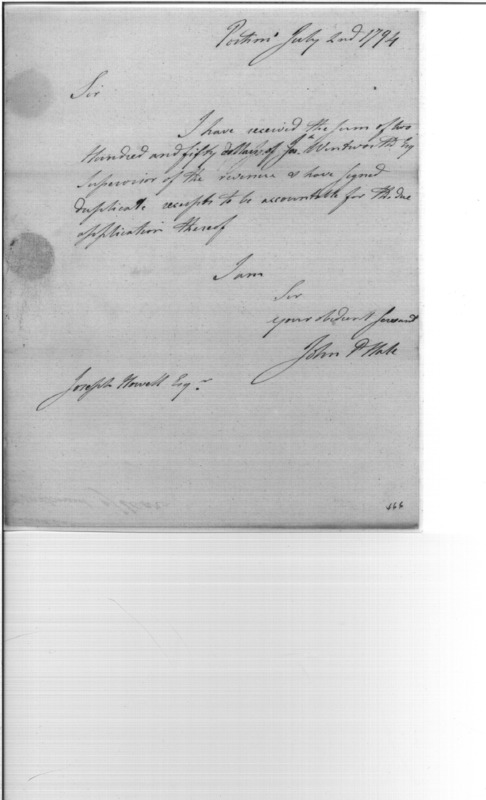 Portsmo July 2nd 1794
Sir
I have received the sum of two
Hundred and fifty dollars of Jos. Wentworth Esq
Supervisor of the revenue & have signed
duplicate receipts to be accountable for the due
application thereof
I am
Sir
your obedient Servant
John P Hale
Joseph Howell Esqr